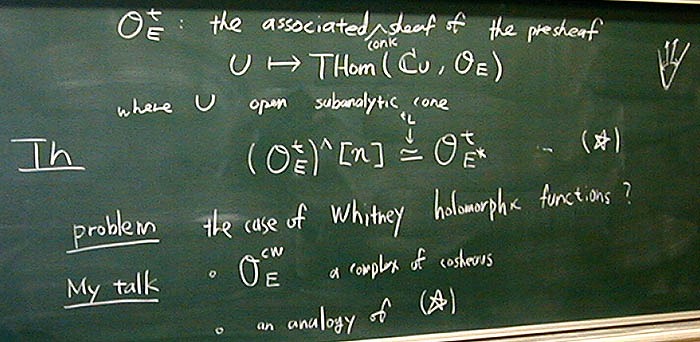 O_E^t : the associated conic sheaf of the presheaf
U ↦ THom(ℂ_U, O_E)
where U open subanalytic cone
Th (O_E^t)^∧[n] ≃ O_{E*}^t ... (☆)
tL ↓
problem the case of Whitney holomorphic functions?
My talk ∘ O_E^{cw} a complex of cosheaves
∘ an analogy of (☆)